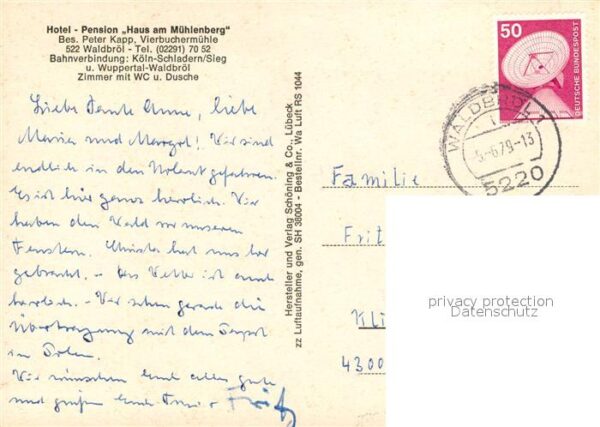 Hotel - Pension „Haus am Mühlenberg"
Bes. Peter Kapp, Vierbuchermühle
522 Waldbröl - Tel. (02291) 70 52
Bahnverbindung: Köln-Schladern/Sieg
u. Wuppertal-Waldbröl
Zimmer mit WC u. Dusche
Liebe Tante Änne, liebe
Maria und Margot! Wir sind
endlich in den Urlaub gefahren.
Es ist hier ganz herrlich. Wir
haben den Wald vor unseren
Fenstern. hat uns her
gebracht. - Das Wetter ist auch
herrlich. - Wir sehen gerade die
Übertragung mit dem Papst
in Polen.
Wir wünschen Euch alles gute
und grüßen Euch Fritz
Hersteller und Verlag Schöning & Co., Lübeck
zz Luftaufnahme, gen. SH 38004 - Bestellnr. Wa Luft RS 1044
50
DEUTSCHE BUNDESPOST
WALDBRÖL
-5.-6.79-13
5220
Familie
Frit
Kli
4300
privacy protection
Datenschutz